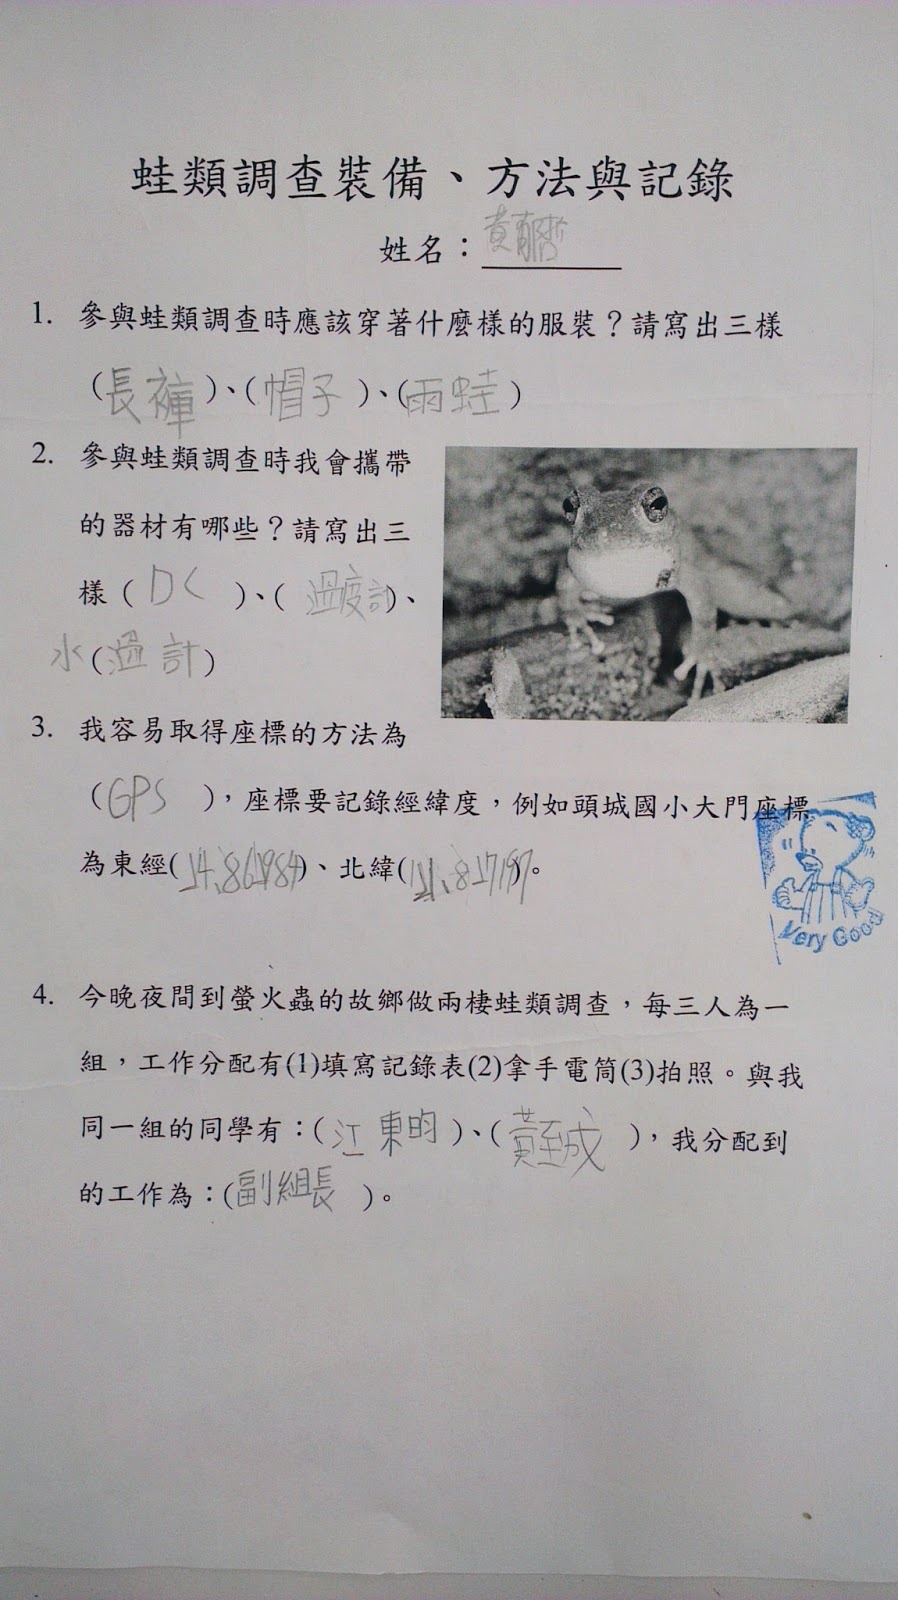 蛙類調查裝備、方法與記錄
姓名：黃
1. 參與蛙類調查時應該穿著什麼樣的服裝？請寫出三樣
(長褲)、(帽子)、(雨蛙)
2. 參與蛙類調查時我會攜帶
的器材有哪些？請寫出三
樣(DC)、(過度計)、
水(過計)
3. 我容易取得座標的方法為
(GPS)，座標要記錄經緯度，例如頭城國小大門座標
為東經()、北緯()。
Very Good
4. 今晚夜間到螢火蟲的故鄉做兩棲蛙類調查，每三人為一
組，工作分配有(1)填寫記錄表(2)拿手電筒(3)拍照。與我
同一組的同學有：(江東昀)、(黃至成)，我分配到
的工作為：(副組長)。